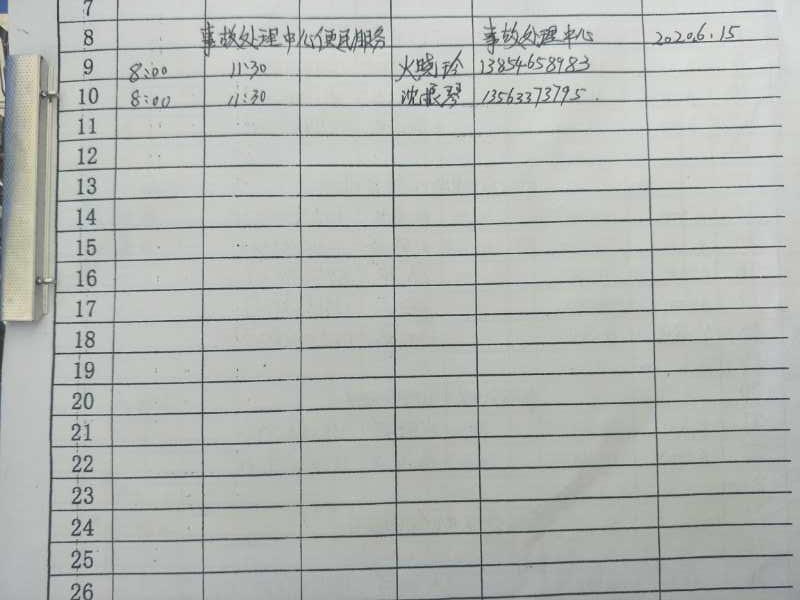 7
8 事故处理中心便民服务 事故处理中心 2020.6.15
9 8:00 11:30 火晓玲 13854658983
10 8:00 11:30 沈银琴 13563373795
11
12
13
14
15
16
17
18
19
20
21
22
23
24
25
26